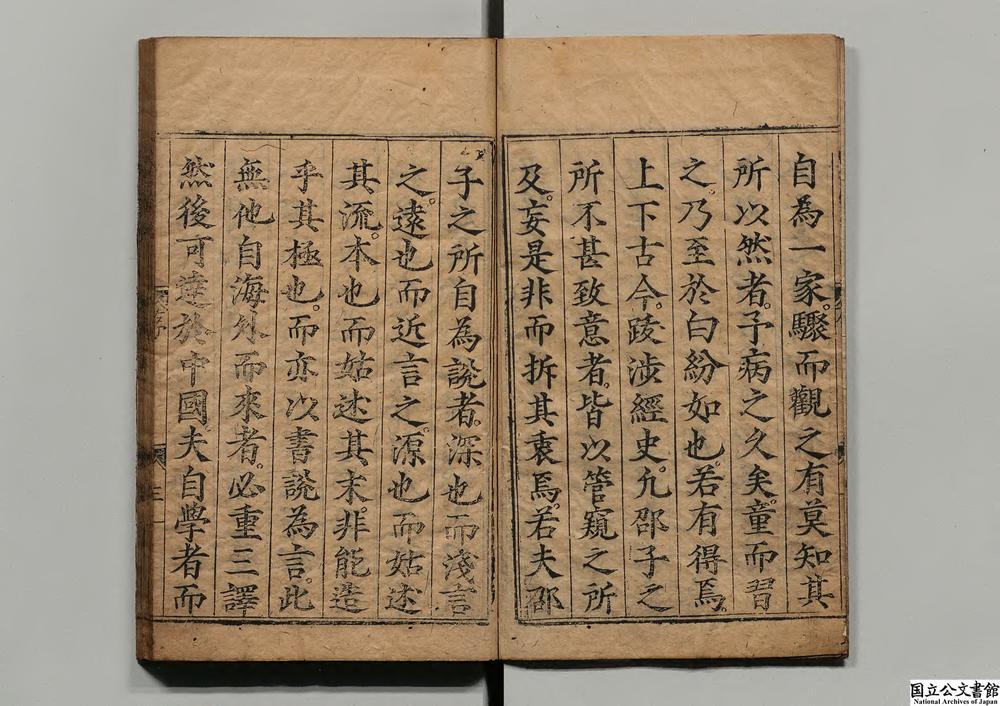 自為一家。驟而觀之有莫知其
所以然者。予病之久矣。童而習
之。乃至於白紛如也。若有得焉
上下古今。䟕涉經史。凡邵子之
所不甚致意者。皆以管窺之所
及。妄是非而折其衷焉。若夫邵
子之所自為說者。深也而淺言
之。遠也而近言之。源也而姑述
其流。本也而姑述其末。非能造
乎其極也。而亦以書說為言。此
無他自海外而來者。必重三譯
然後可達於中國夫自學者而
国立公文書館
National Archives of Japan